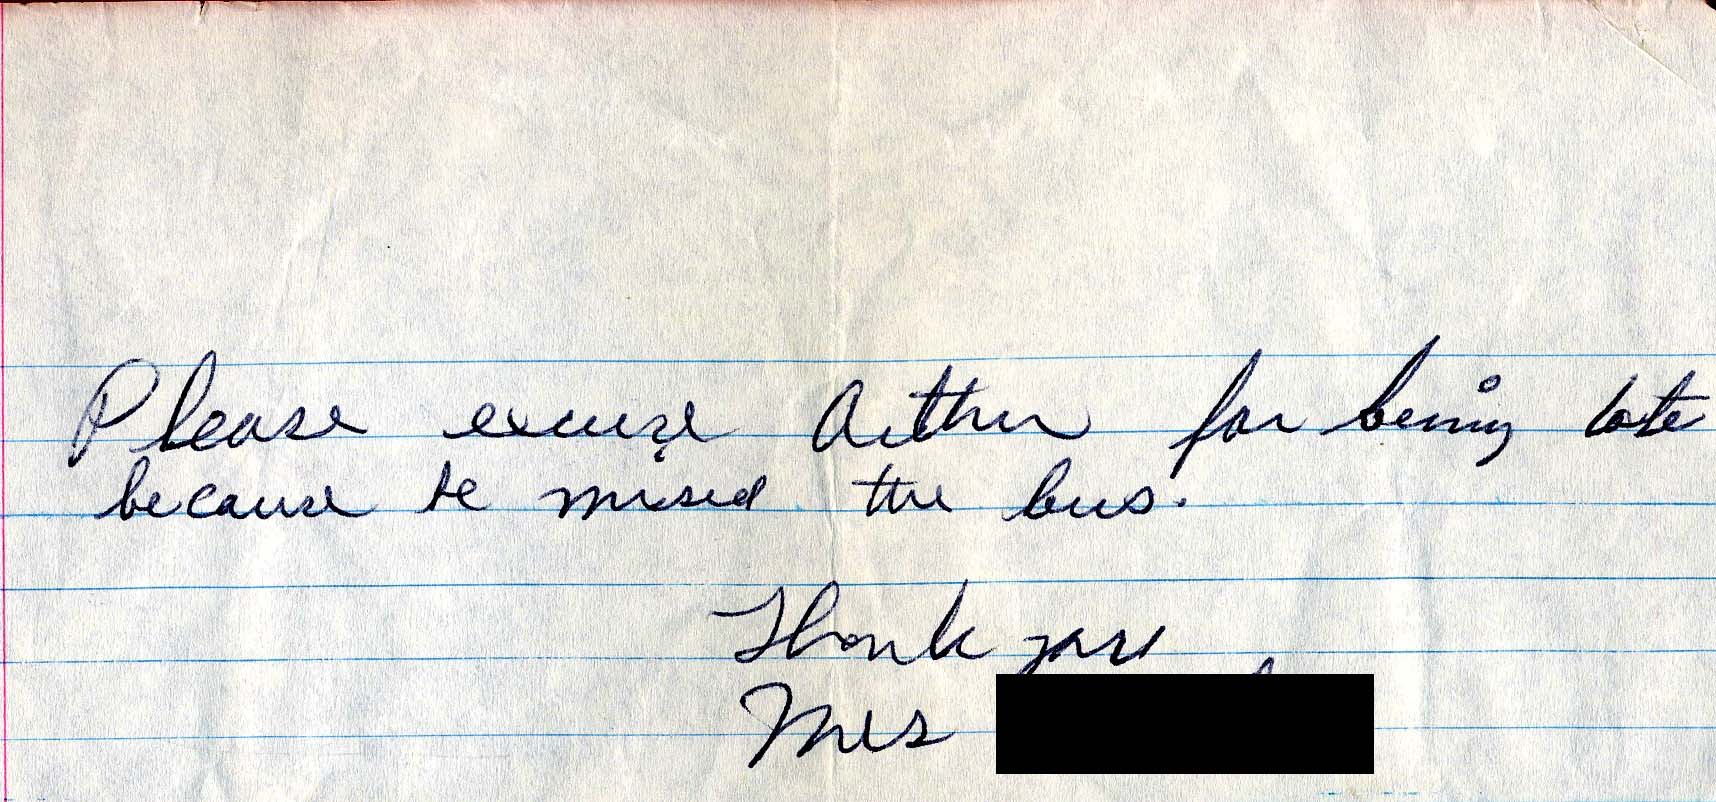 Please excuse Arthur for being late
because he missed the bus.
Thank you
Mrs